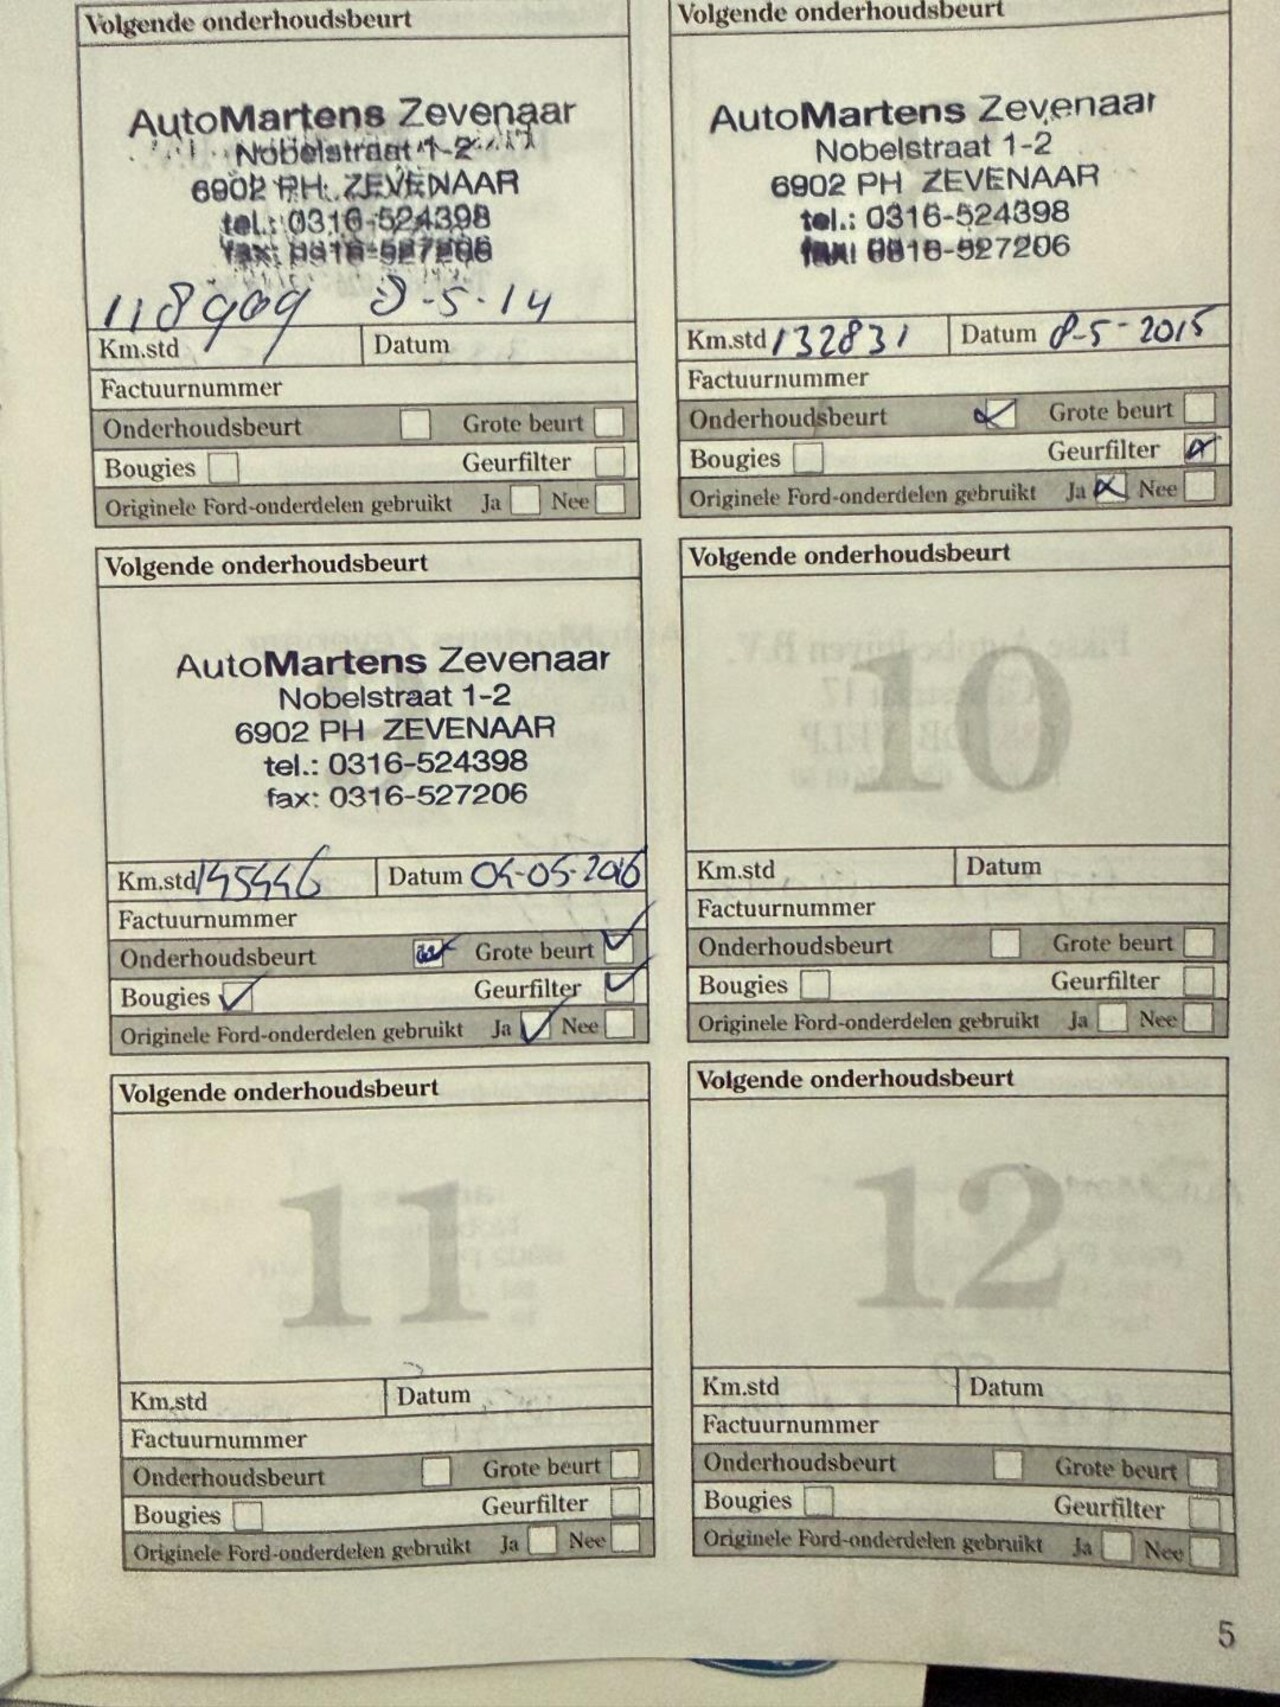 Volgende onderhoudsbeurt
AutoMartens Zevenaar
Nobelstraat 1-2
6902 PH ZEVENAAR
tel.: 0316-524398
fax: 0316-527206
118909 8-5-14
Km.std Datum
Factuurnummer
Onderhoudsbeurt Grote beurt
Bougies Geurfilter
Originele Ford-onderdelen gebruikt Ja Nee
Volgende onderhoudsbeurt
AutoMartens Zevenaar
Nobelstraat 1-2
6902 PH ZEVENAAR
tel.: 0316-524398
fax: 0316-527206
Km.std 132831 Datum 8-5-2015
Factuurnummer
Onderhoudsbeurt Grote beurt
Bougies Geurfilter
Originele Ford-onderdelen gebruikt Ja Nee
Volgende onderhoudsbeurt
AutoMartens Zevenaar
Nobelstraat 1-2
6902 PH ZEVENAAR
tel.: 0316-524398
fax: 0316-527206
Km.std 145446 Datum 04-05-2016
Factuurnummer
Onderhoudsbeurt Grote beurt
Bougies Geurfilter
Originele Ford-onderdelen gebruikt Ja Nee
Volgende onderhoudsbeurt
10
Km.std Datum
Factuurnummer
Onderhoudsbeurt Grote beurt
Bougies Geurfilter
Originele Ford-onderdelen gebruikt Ja Nee
Volgende onderhoudsbeurt
11
Km.std Datum
Factuurnummer
Onderhoudsbeurt Grote beurt
Bougies Geurfilter
Originele Ford-onderdelen gebruikt Ja Nee
Volgende onderhoudsbeurt
12
Km.std Datum
Factuurnummer
Onderhoudsbeurt Grote beurt
Bougies Geurfilter
Originele Ford-onderdelen gebruikt Ja Nee
5